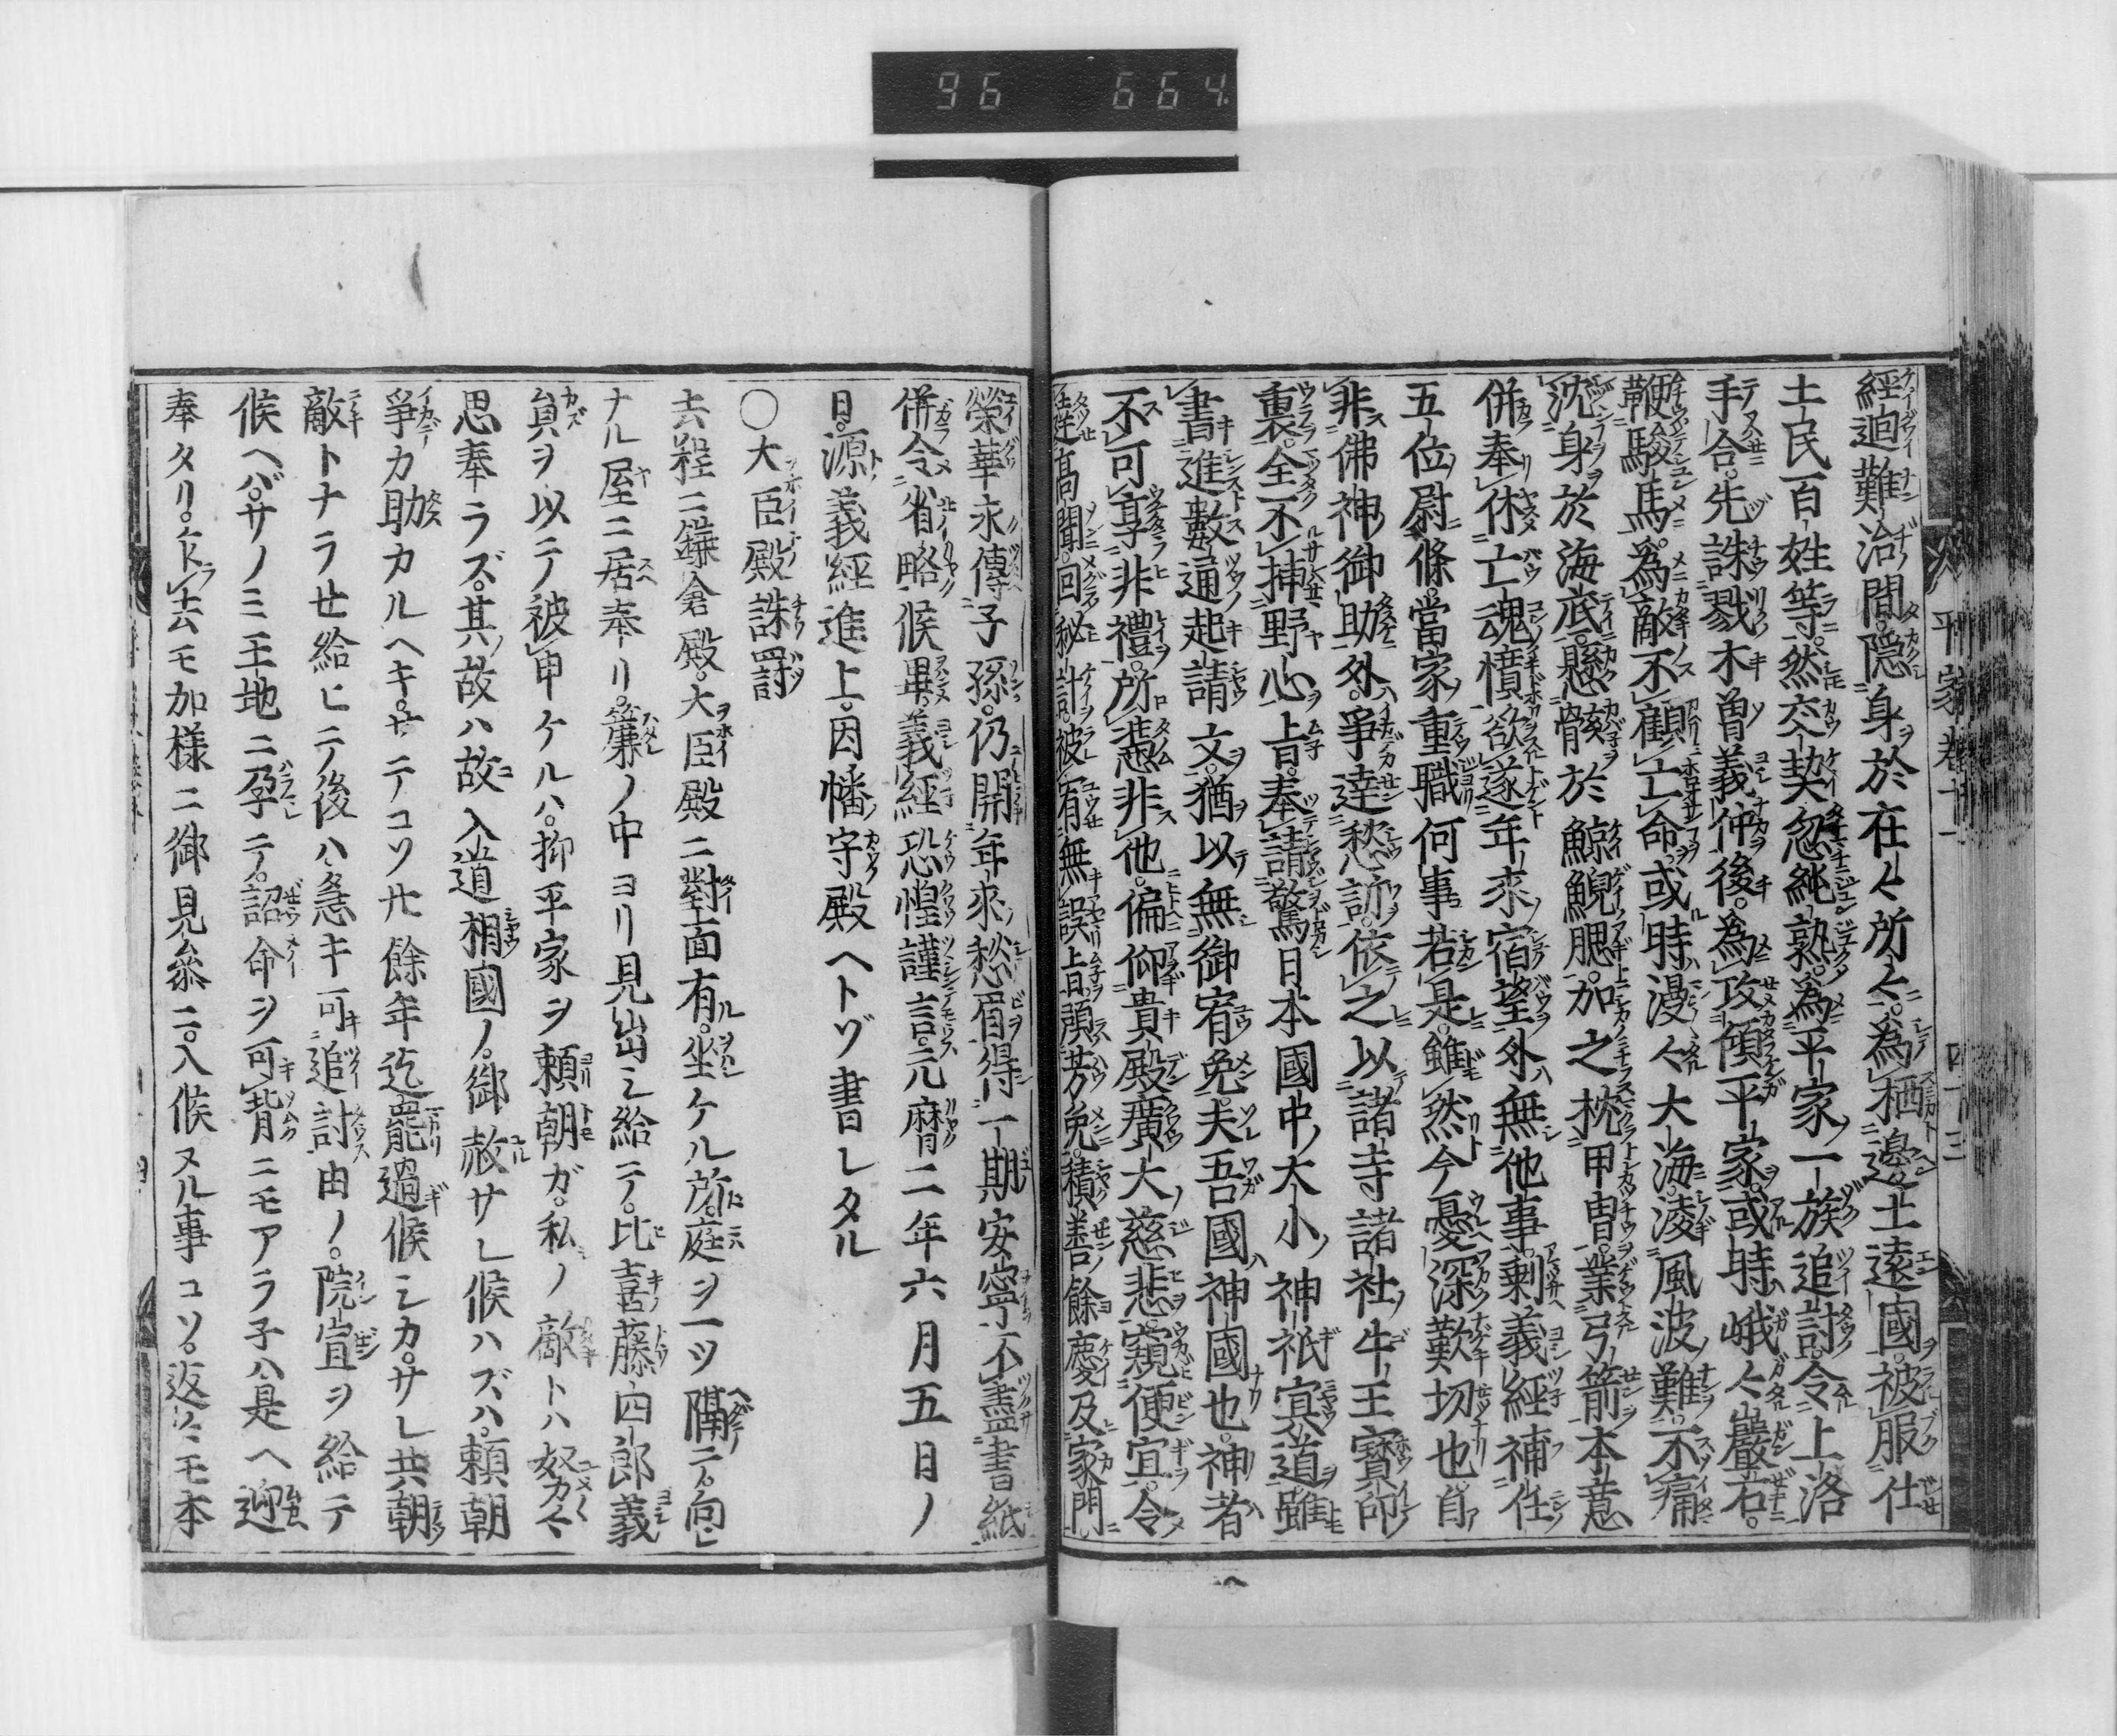 96 664
平家巻十一 四十三
經廻難治間。隠身於在々所々。為栖邊土遠國。被服仕
土民百姓等。然交契忽純熟。為平家一族追討。令上洛
手合。先誅戮木曽義仲後。為攻傾平家。或時峨々巖石。
鞭駿馬。為敵不顧亡命。或時漫々大海。凌風波難。不痛
沈身於海底。懸骸於鯨鯢腮。加之枕甲冑。業弓箭本意
併奉休亡魂憤。欲遂年来宿望外無他事。剰義經補任
五位尉條。當家重職何事若是。雖然今憂深歎切也。自
非佛神御助外。争達愁訴。依之以諸寺諸社牛王寳印
裏。全不挿野心上旨。奉請驚日本國中大小神祇冥道。雖
書進數通起請文。猶以無御宥免。夫吾國神國也。神者
不可享非禮。所憑非他。偏仰貴殿廣大慈悲。窺便宜。令
達高聞。回秘計。被宥無誤上旨。預芳免。積善餘慶及家門
榮華永傳子孫。仍開年来愁眉。得一期安寧。不盡書紙
併令省略候畢。義經恐惶謹言。元暦二年六月五日ノ
日。源義經進上。因幡守殿ヘトゾ書レタル
○大臣殿誅罸
去程ニ鎌倉殿。大臣殿ニ對面有。坐ケル所。庭ヲ一ツ隔テ。向ヒ
ナル屋ニ居奉リ。簾ノ中ヨリ見出シ給テ。比喜藤四郎義
員ヲ以テ被申ケルハ。抑平家ヲ頼朝ガ。私ノ敵トハ奴力々
思奉ラズ。其故ハ故入道相國ノ。御赦サレ候ハズハ。頼朝
争カ助カルヘキ。サテコソ廿餘年迄罷過候シカ。サレ共朝
敵トナラせ給ヒテ後ハ。急キ可追討由ノ。院宣ヲ給テ
候ヘバ。サノミ王地ニ孕テ。詔命ヲ可背ニモアラ子ハ。是ヘ迎
奉タリ。乍去モ加様ニ御見参ニ。入候ヌル事コソ。返々モ本